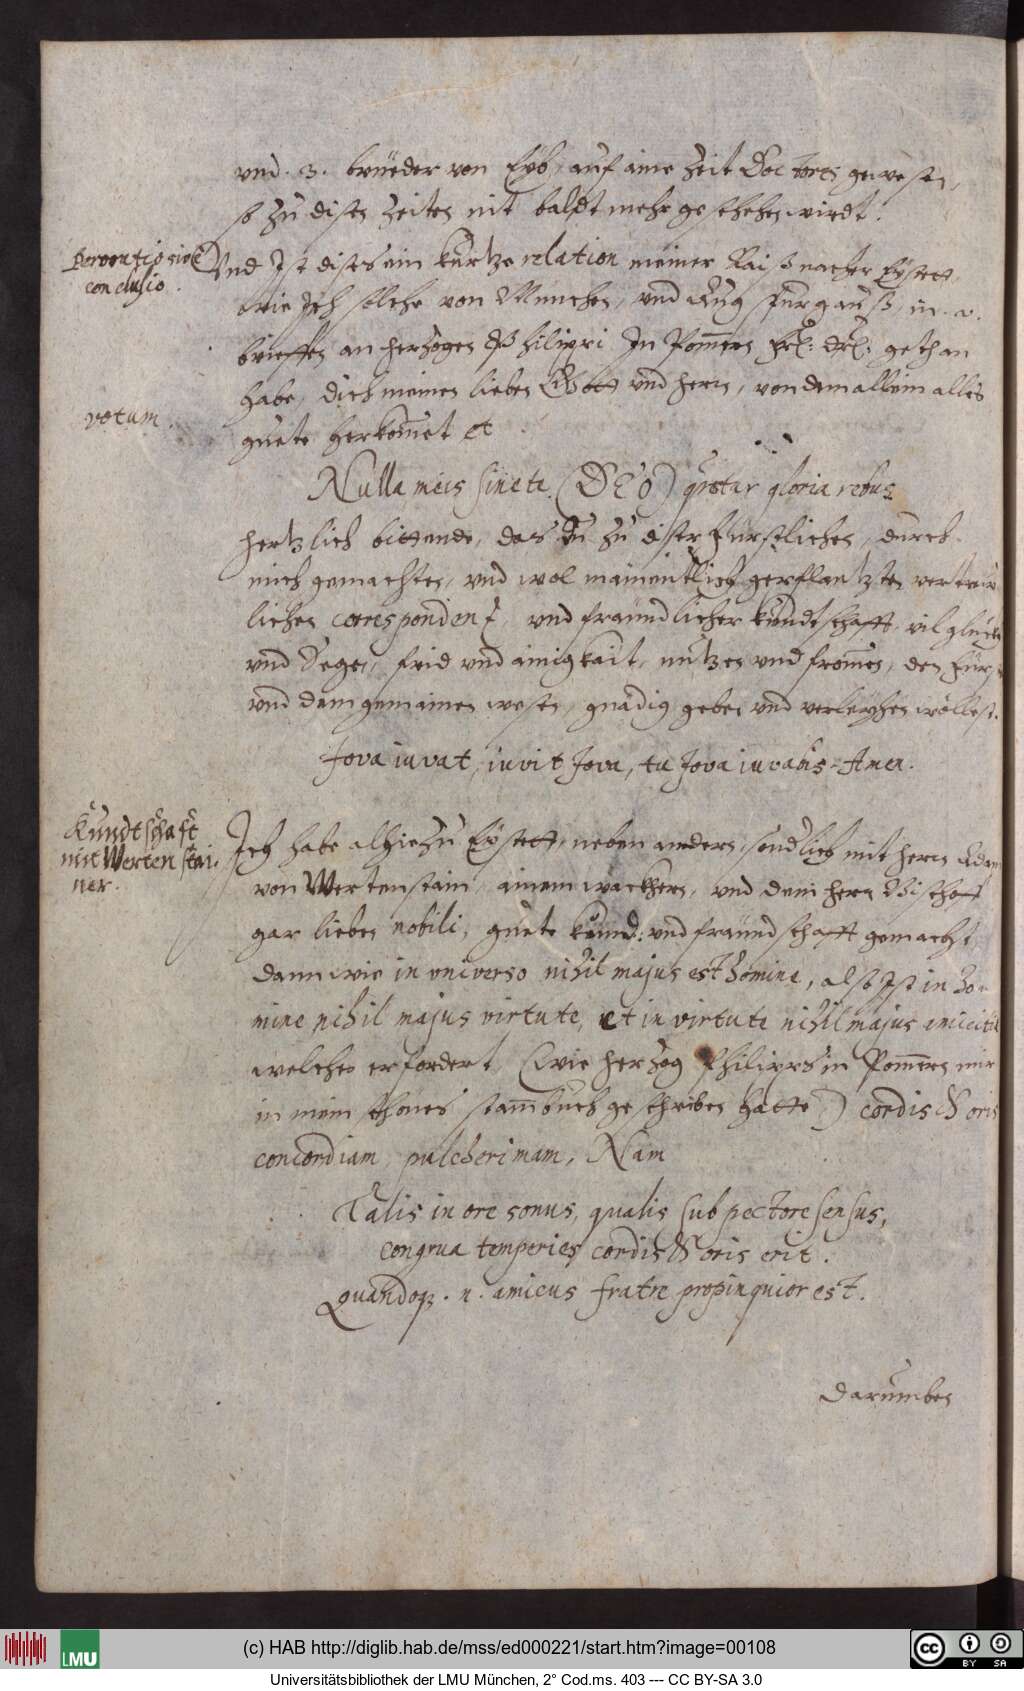 vnd .3. brüeder von Eyb, auf aine Zeit Doctores gewesen,
so zu disen Zeiten nit baldt mehr geschehen wirdt.
Peroratio sive
conclusio.
Vnd Ist dises ein kurtze relation meiner Raiß nacher Eystett,
wie Ich solche von München, vnd Augspurg auß, in
brieffen an herzogen Philippi In Pom̄ern gethan
habe, dich meinen lieben Gott vnd herrn, von dem allein alles
votum.
guete herkom̄et et
Nulla meis sine te (DEO) quæratur gloria rebus
hertzlich bittende, das du zu diser fürstlichen, durch
mich gemachten, vnd wol gepflantzten vertrew
lichen correspondentz, vnd freundlicher kundtschafft, vil glückh
vnd Segen, frid vnd ainigkait, nutzen vnd from̄en, den Für
vnd dem gemainen wesen, gnädig geben vnd verleyhen wöllest.
Jova iuvat, iuvit Jova, tu Jova iuvabis. Amen.
Kundtschafft
mit Wertenstai
ner.
Ich habe alhie zu Eystett, neben andern, sondlich mit herrn Adam
von Wertenstain, ainem wackhern, vnd dem herrn Bischoff
gar lieben nobili, guete kund: vnd fraündschafft gemacht,
dann wie in vniverso nihil majus est homine, also Ist in ho
mine nihil majus virtute, et in virtute nihil majus amicitia
welche erfordert (wie herzog Philipps in Pom̄ern mir
in mein schones stam̄buch geschriben hatte) cordis & oris
concordiam pulcherimam, Nam
Talis in ore sonus, qualis sub pectore sensus,
congrua temperies cordis & oris erit.
Quandoq₃ .n. amicus fratre propinquior est.
Darumben
(c) HAB http://diglib.hab.de/mss/ed000221/start.htm?image=00108
LMU
CC BY SA
Universitätsbibliothek der LMU München, 2° Cod.ms. 403 --- CC BY-SA 3.0